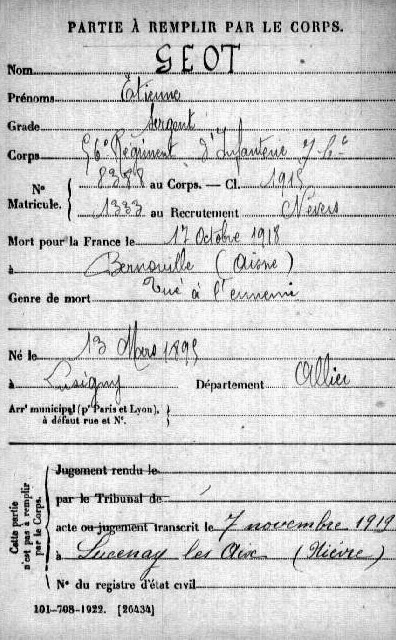 PARTIE À REMPLIR PAR LE CORPS.
Nom GEOT
Prénoms Etienne
Grade Sergent
Corps 56e Régiment d'Infanterie 7e Cie
N° Matricule. 8388 au Corps. — Cl. 1915
1333 au Recrutement Nevers
Mort pour la France le 17 Octobre 1918
à Bernoville (Aisne)
Genre de mort Tué à l'ennemi
Né le 13 Mars 1895
à Lusigny Département Allier
Arrt municipal (pr Paris et Lyon),
à défaut rue et N°.
Cette partie n'est pas à remplir par le Corps.
Jugement rendu le
par le Tribunal de
acte ou jugement transcrit le 7 novembre 1919
à Lucenay les Aix (Nièvre)
N° du registre d'état civil
101-708-1922. [26434]